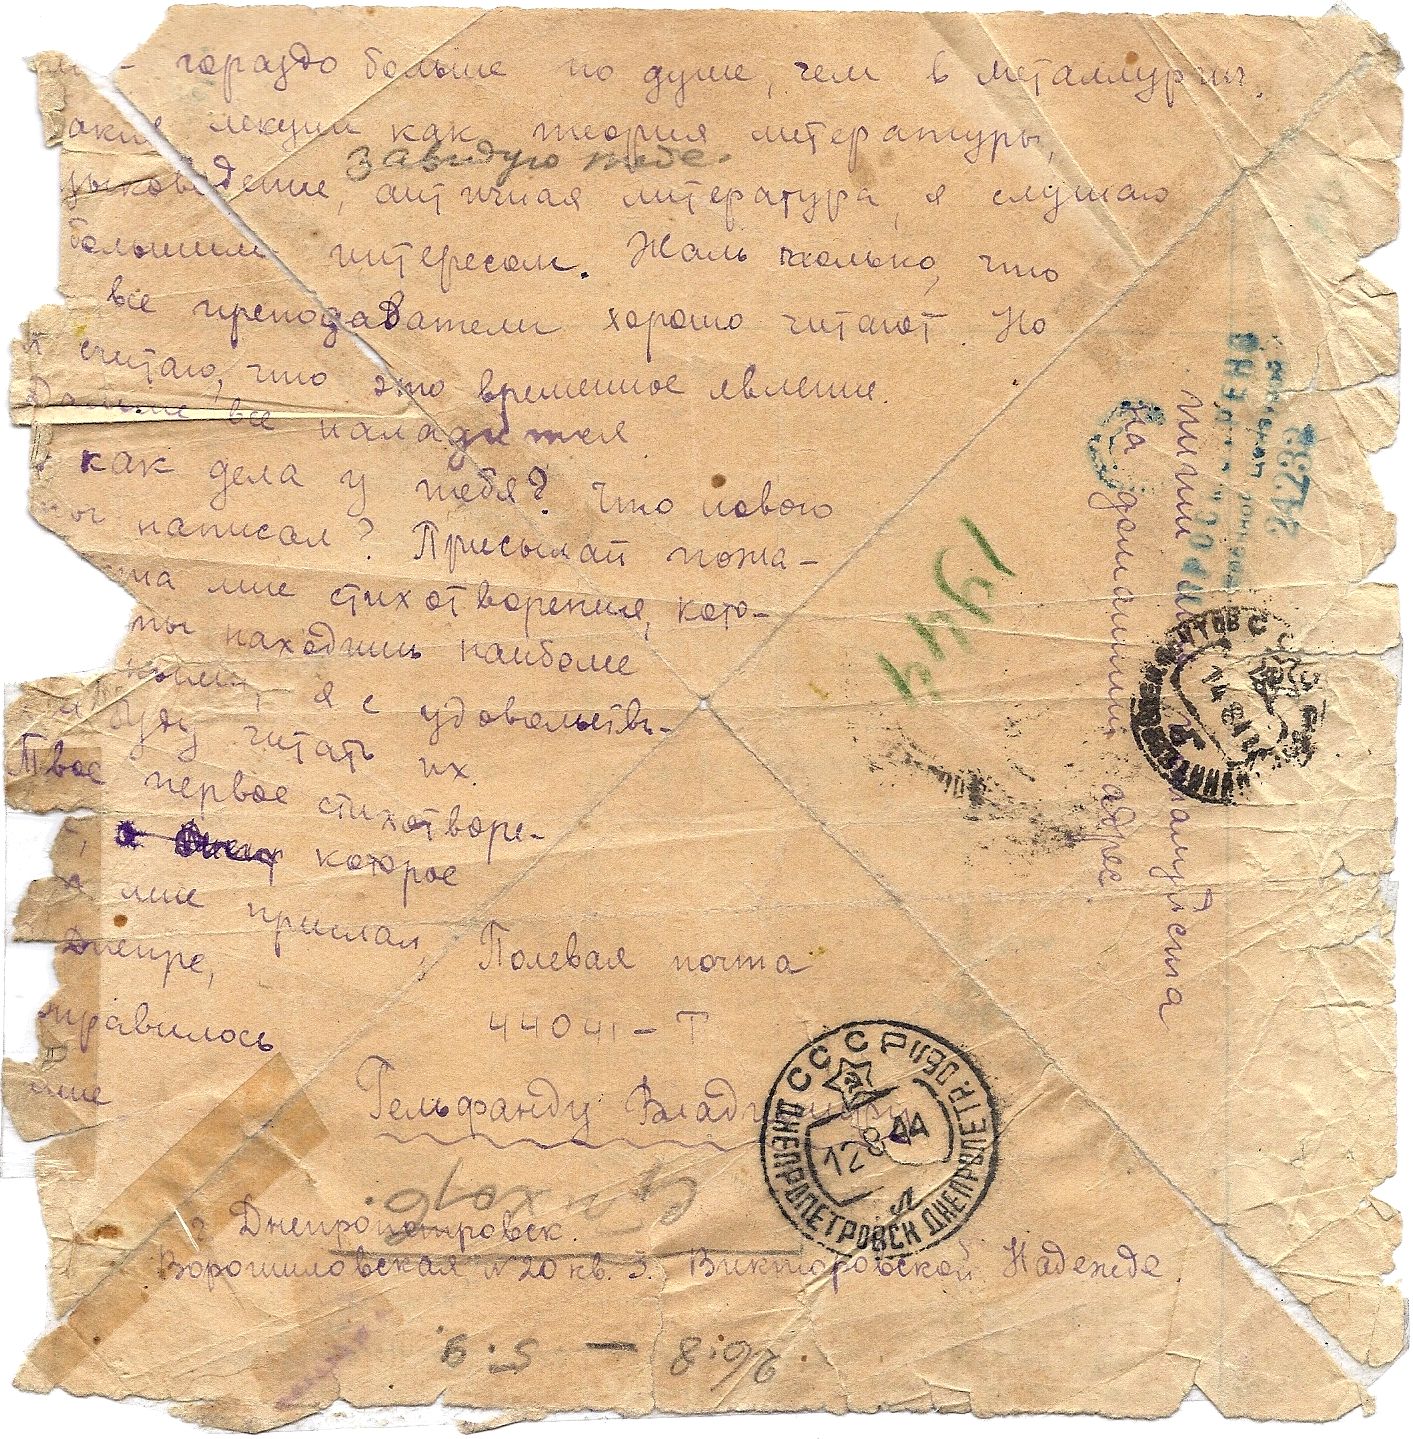 гораздо больше по душе, чем в металлургии.
акие лекции как теория литературы,
Завидую тебе.
зыковедение, античная литература, я слушаю
большим интересом. Жаль только, что
все преподаватели хорошо читают. Но
я считаю, что это временное явление.
Дальше все наладится
как дела у тебя? Что нового
ты написал? Присылай пожа-
ста мне стихотворения, кото-
ты находишь наиболее
ными, я с удовольстви-
буду читать их.
Твое первое стихотворе-
которое
мне прислал,
Днепре,
нравилось
мне
Полевая почта
44041-Т
Гельфанду Владимиру
г. Днепропетровск.
Ворошиловская № 20 кв. 3. Викторовской Надежде.
26.8 — 5.9.
1944
пиши
На домашний адрес.
24232
СССР
ДНЕПРОПЕТРОВСК ДНЕПРОПЕТР. ОБЛ
12 8 44